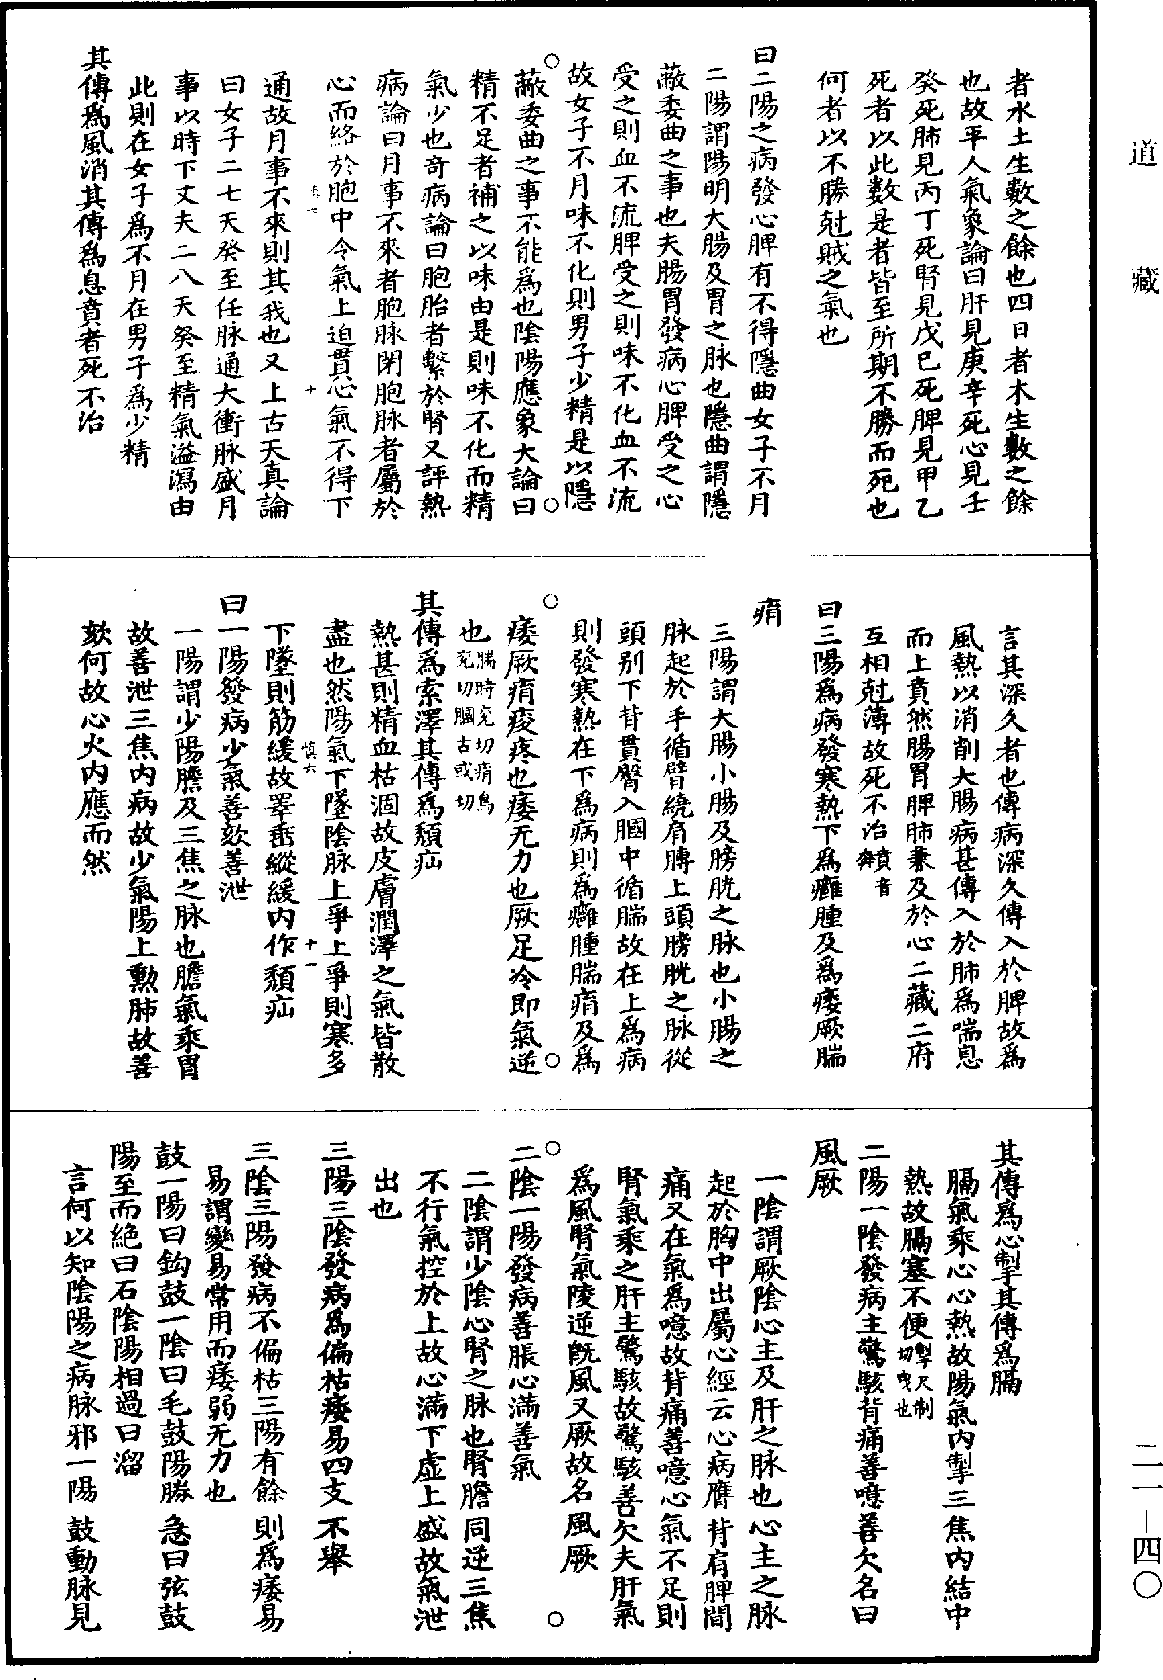 道藏
者水土生數之餘也四日者木生數之餘
也故平人氣象論曰肝見庚辛死心見壬
癸死肺見丙丁死腎見戊巳死脾見甲乙
死者以此數是者皆至所期不勝而死也
何者以不勝尅賊之氣也
曰二陽之病發心脾有不得隱曲女子不月
二陽謂陽明大腸及胃之脉也隱曲謂隱
蔽委曲之事也夫腸胃發病心脾受之心
受之則血不流脾受之則味不化血不流
故女子不月味不化則男子少精是以隱
蔽委曲之事不能爲也陰陽應象大論曰
精不足者補之以味由是則味不化而精
氣少也奇病論曰胞胎者繫於腎又評熱
病論曰月事不來者胞脉閉胞脉者屬於
心而絡於胞中令氣上迫貫心氣不得下
十
通故月事不來則其我也又上古天真論
曰女子二七天癸至任脉通大衝脉盛月
事以時下丈夫二八天癸至精氣溢瀉由
此則在女子爲不月在男子爲少精
其傳爲風消其傳爲息賁者死不治
言其深久者也傳病深久傳入於脾故爲
風熱以消削大腸病甚傳入於肺爲喘息
而上賁然腸胃脾肺兼及於心二藏二府
互相尅薄故死不治賁音奔
曰三陽爲病發寒熱下爲癰腫及爲痿厥腨
痟
三陽謂大腸小腸及膀胱之脉也小腸之
脉起於手循臂繞肩膊上頭膀胱之脉從
頭別下背貫臀入膕中循腨故在上爲病
則發寒熱在下爲病則爲癰腫腨痟及爲
痿厥痟痠疼也痿无力也厥足冷即氣逆
也腨時兖切痟烏兖切膕古或切
其傳爲索澤其傳爲頹疝
熱甚則精血枯涸故皮膚潤澤之氣皆散
盡也然陽氣下墜陰脉上爭上爭則寒多
慎六
十一
下墜則筋緩故睪垂縱緩内作頹疝
曰一陽發病少氣善欬善泄
一陽謂少陽膽及三焦之脉也膽氣乘胃
故善泄三焦内病故少氣陽上熏肺故善
欬何故心火内應而然
其傳爲心掣其傳爲膈
膈氣乘心心熱故陽氣内掣三焦内結中
熱故膈塞不便掣尺制切曳也
二陽一陰發病主驚駭背痛善噫善欠名曰
風厥
一陰謂厥陰心主及肝之脉也心主之脉
起於胸中出屬心經云心病膺背肩脾間
痛又在氣爲噫故背痛善噫心氣不足則
腎氣乘之肝主驚駭故驚駭善欠夫肝氣
爲風腎氣陵逆既風又厥故名風厥
二陰一陽發病善脹心滿善氣
二陰謂少陰心腎之脉也腎膽同逆三焦
不行氣控於上故心滿下虛上盛故氣泄
出也
三陽三陰發病爲偏枯痿易四支不舉
三陰三陽發病不偏枯三陽有餘則爲痿易
易謂變易常用而痿弱无力也
鼓一陽曰鈎鼓一陰曰毛鼓陽勝急曰弦鼓
陽至而絕曰石陰陽相過曰溜
言何以知陰陽之病脉邪一陽鼓動脉見
二一—四〇